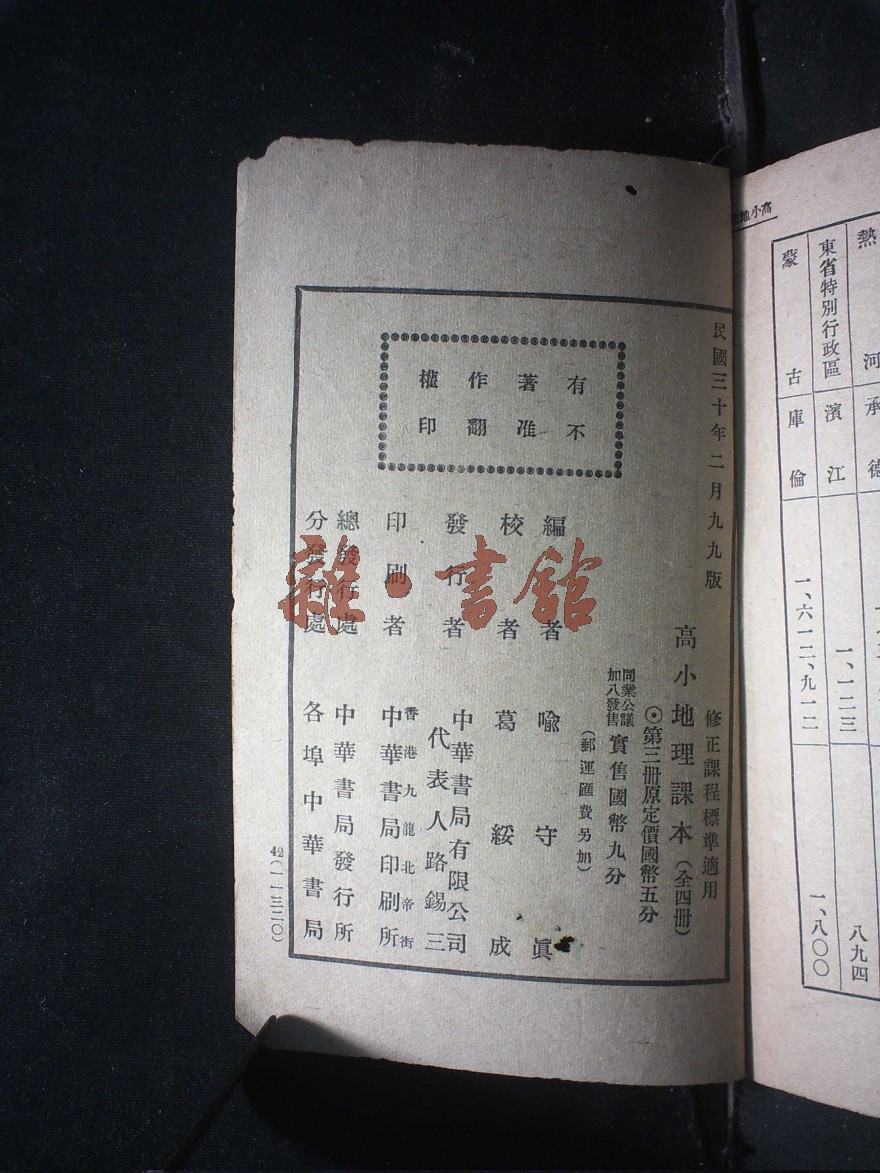 高小地
熱河 承德
八九四
東省特別行政區 濱江 一、一二三
蒙古 庫倫 一、六一二、九一二 一、八〇〇
民國三十年二月九九版
有著作權
不准翻印
修正課程標準適用
高小地理課本(全四冊)
⊙第三冊原定價國幣五分
同業公議
加八發售
實售國幣九分
(郵運匯費另加)
編者 喩守眞
校者 葛綏成
發行者 中華書局有限公司
代表人路錫三
印刷者 香港九龍北帝街
中華書局印刷所
總發行處 中華書局發行所
分發行處 各埠中華書局
42(一一三二〇)
雜·書館